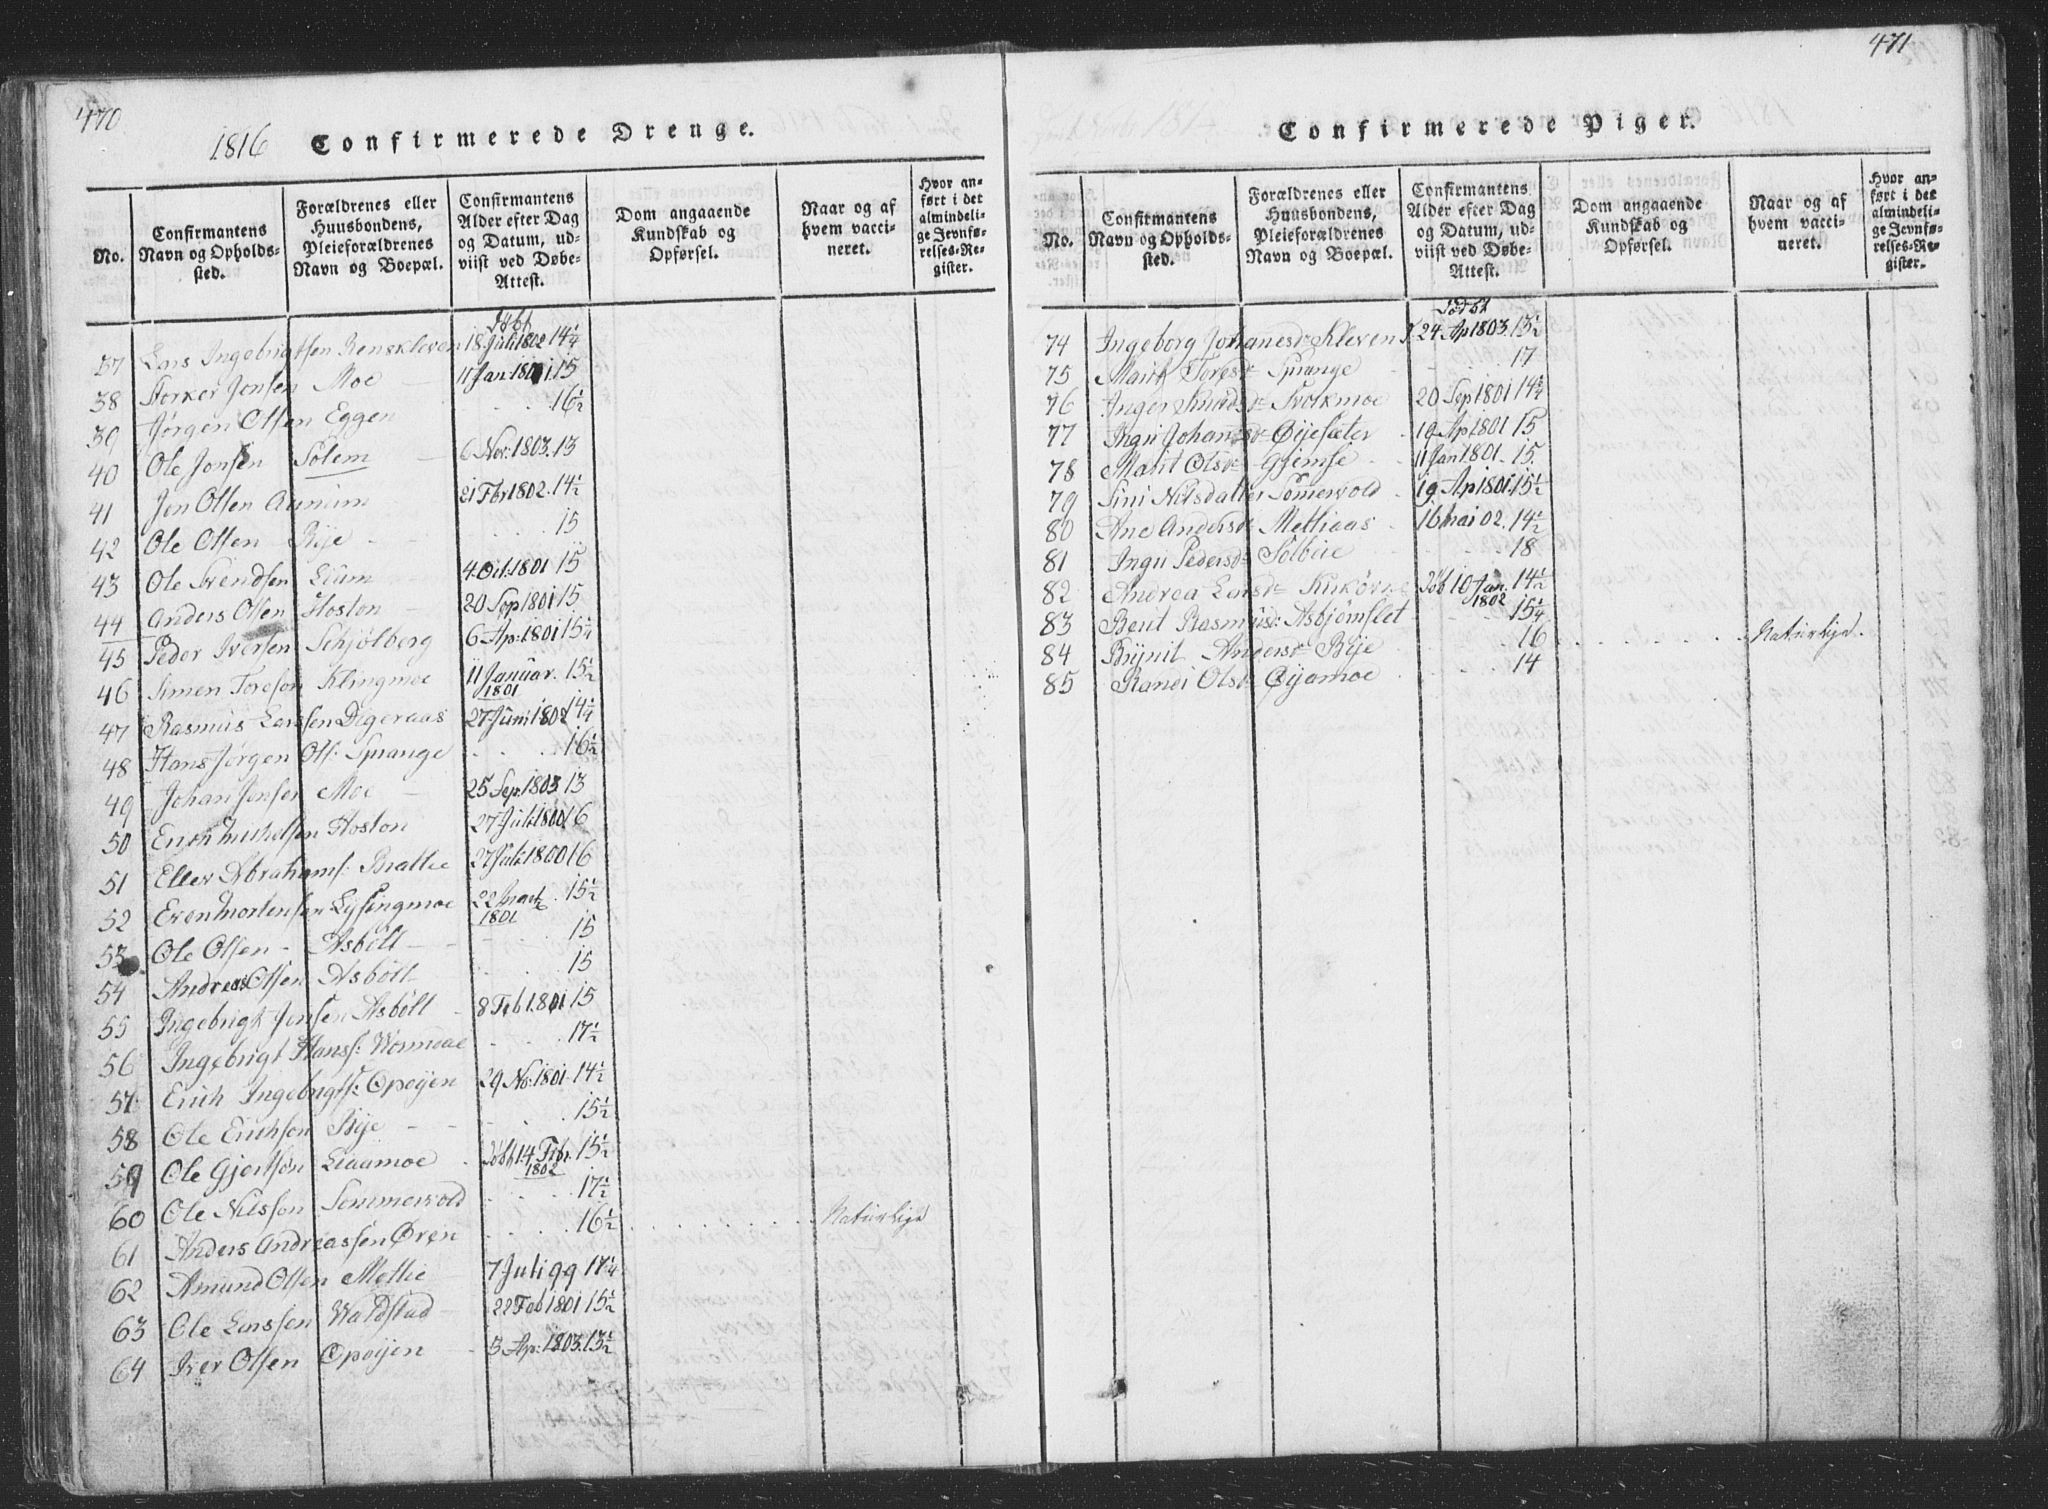 470
1816 Confirmerede Drenge.
No.
Confirmantens Navn og Opholds-sted.
Forældrenes eller Huusbondens, Pleieforældrenes Navn og Boepæl.
Confirmantens Alder efter Dag og Datum, ud-viist ved Døbe-Attest.
Dom angaaende Kundskab og Opførsel.
Naar og af hvem vacci-neret.
Hvor an-ført i det almindeli-ge Jevnfø-relses-Re-gister.
døbt
37 Lars Ingebrigtsen Renskleven 18 Juli 1802 14 1/4
38 Storker Jonsen Moe 11 Jan 1801. 15
39 Jørgen Olsen Eggen 16 1/2
40 Ole Jonsen Solem 6 Nov: 1803. 13
41 Jon Olsen Aunum 21 Fbr 1802. 14 1/2
42 Ole Olsen Bye 15
43 Ole Svendsen Lium 4 Oct. 1801 15
44 Anders Olsen Hoston 20 Sep 1801 15
45 Peder Iversen Schjølberg 6 Ap: 1801 15 1/4
46 Simen Toresen Klingmoe 11 Januar. 1801 15 1/2
47 Rasmus Larssen Digeraas 27 Juni 1802 14 1/4
48 Hans Jørgen Ols: Sprange 16 1/2
49 Johan Jensen Moe 25 Sep. 1803 13
50 Erich Michelsen Hoston 27 Juli 1800 16
51 Eller Abrahams: Brattie 27 Juli 1800 16
52 Even Mortensen Lysingmoe 22 Mart 1801 15 1/2
53 Ole Olsen Asbølt 15
54 Andreas Olsen Asbølt 15
55 Ingebrigt Jensen Asbølt 8 Feb 1801 15
56 Ingebrigt Hans: Wormdal 17 1/2
57 Erich Ingebrigts: Opøijen 29 No: 1801. 14 1/2
58 Ole Erichsen Bye 15 1/2
59 Ole Gjertsøn Liaamoe døbt 14 Fbr. 1802 15 1/2
60 Ole Nilssøn Sommervold 17 1/2
61 Anders Andreassen Øren 16 1/2 Naturlige
62 Amund Olsen Mettie 7 Juli 99 17 1/4
63 Ole Larssen Waldstad 22 Feb 1801 15 1/2
64 Iver Olsen Opøijen 3 Ap: 1803. 13 1/2
471
Confirmerede Piger.
No.
Confirmantens Navn og Opholds-sted.
Forældrenes eller Huusbondens, Pleieforældrenes Navn og Boepæl.
Confirmantens Alder efter Dag og Datum, ud-viist ved Døbe-Attest.
Dom angaaende Kundskab og Opførsel.
Naar og af hvem vacci-neret.
Hvor an-ført i det almindeli-ge Jevnfø-relses-Re-gister.
Døbt
74 Ingeborg Johanesdr Kleven 24 Ap 1803. 13 1/2
75 Marit Toresdr Sprange 17
76 Inger Knudsdr Svorkmoe 20 Sep 1801 14 3/4
77 Ingri Johansdr Øijesæter 19 Ap 1801 15
78 Marit Olsdr Gjemse 11 Jan 1801. 15
79 Sini Nilsdatter Sømervold 19 Ap 1801. 15 1/2
80 Ane Andersdr Mettiaas 16 Mai 02. 14 1/2
81 Ingri Pedersdr Solbeie 18
82 Andrea Larsdr Krokørne døb 10 Jan. 1802 14 1/2
83 Berit Rasmusdr Asbjørnslet 15 1/4
84 Brynil Andersdr Bye 16 Naturlige.
85 Randi Olsdr Øijamoe 14